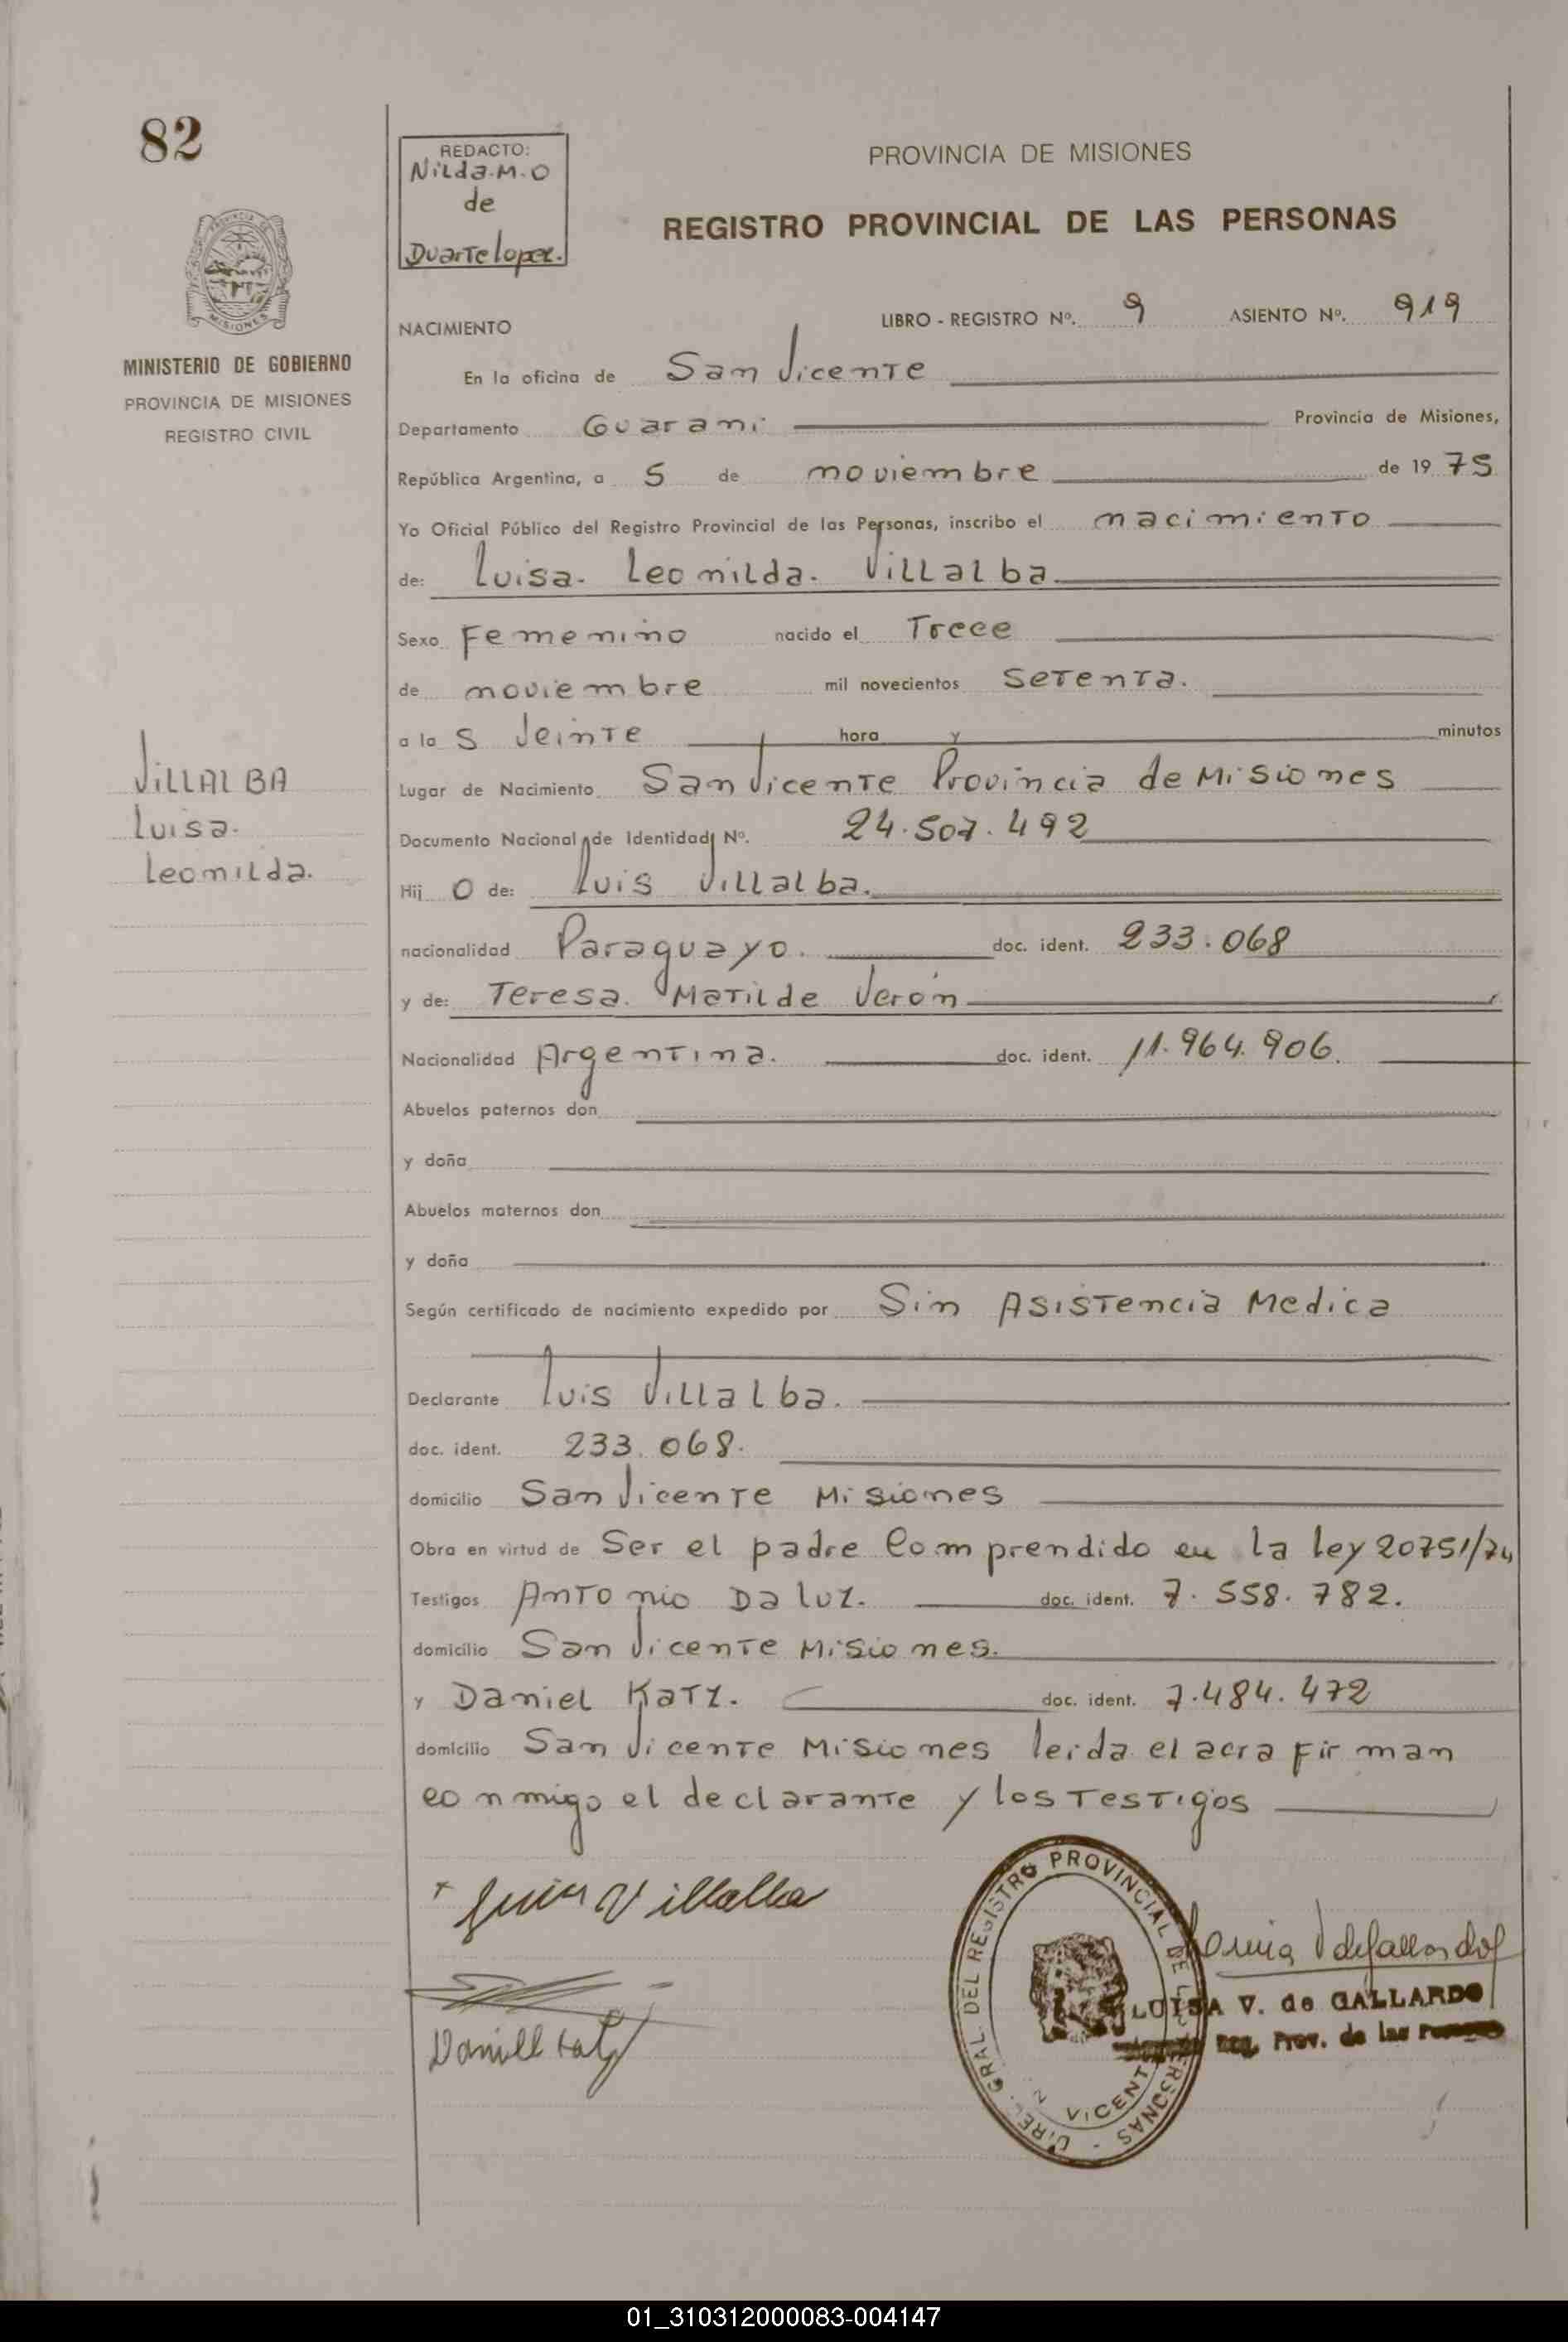 82
REDACTO:
Nilda.M.O
de
Duarte Lopez.
PROVINCIA DE MISIONES
REGISTRO PROVINCIAL DE LAS PERSONAS
PROVINCIA DE
MISIONES
MINISTERIO DE GOBIERNO
PROVINCIA DE MISIONES
REGISTRO CIVIL
NACIMIENTO LIBRO - REGISTRO Nº. 9 ASIENTO Nº. 919
En la oficina de San Vicente
Departamento Guarani Provincia de Misiones,
República Argentina, a 5 de noviembre de 19 75
Yo Oficial Público del Registro Provincial de las Personas, inscribo el nacimiento
de: Luisa. Leonilda. Villalba.
Sexo Femenino nacido el Trece
de noviembre mil novecientos Setenta.
a la s Veinte hora y minutos
Lugar de Nacimiento San Vicente Provincia de Misiones
Documento Nacional de Identidad Nº. 24.507.492
Hij o de: Luis Villalba.
nacionalidad Paraguayo. doc. ident. 233.068
y de: Teresa. Matilde Verón
Nacionalidad Argentina. doc. ident. 11.964.906.
Abuelos paternos don
y doña
Abuelos maternos don
y doña
Según certificado de nacimiento expedido por Sin Asistencia Medica
Declarante Luis Villalba.
doc. ident. 233.068.
domicilio San Vicente Misiones
Obra en virtud de Ser el padre Comprendido en la ley 20751/74
Testigos Antonio Da Luz. doc. ident. 7.558.782.
domicilio San Vicente Misiones.
y Daniel Katz. doc. ident. 7.484.472
domicilio San Vicente Misiones leida el acta firman
conmigo el declarante y los Testigos
VILLALBA
Luisa.
Leonilda.
Luis Villalba
Daniel Katz
DIREC. GRAL. DEL REGISTRO PROVINCIAL DE LAS PERSONAS
VICENTE
LUISA V. de GALLARDO
Reg. Prov. de las Personas
01_310312000083-004147